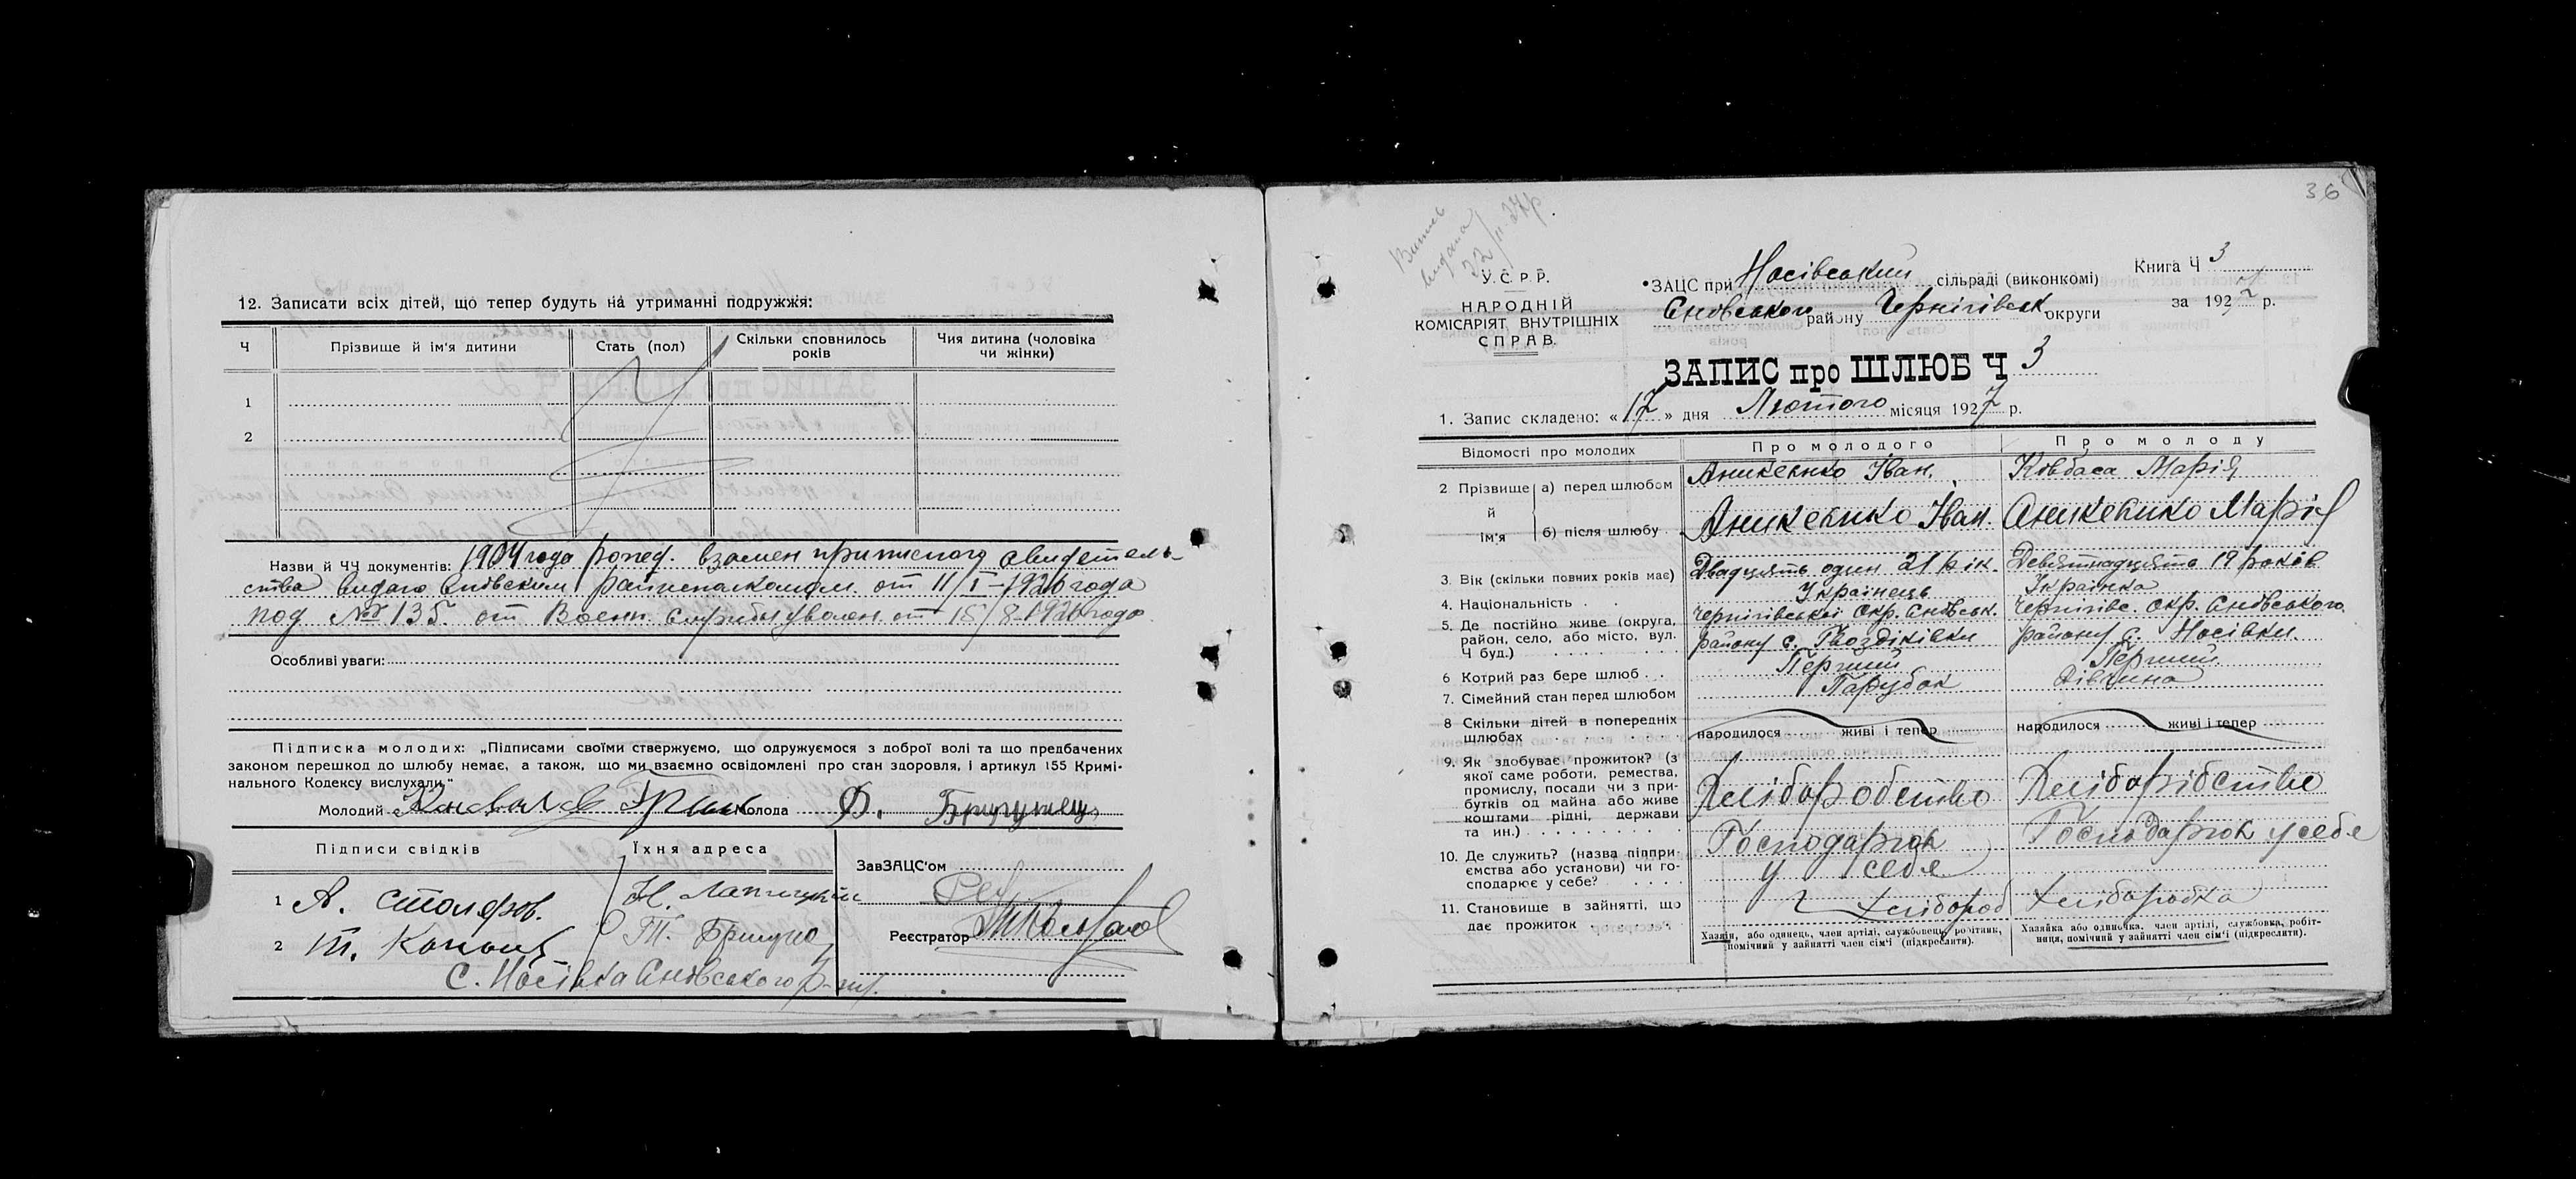 12. Записати всіх дітей, що тепер будуть на утриманні подружжя:
Ч Прізвище й ім'я дитини Стать (пол) Скільки сповнилось років Чия дитина (чоловіка чи жінки)
1
2
Назви й ЧЧ документів: 1904 года рожд. взамен приписного свидетель-
ства видано Сновским райисполкомом от 11/I-1926 года
под № 135 от Воен. службы уволен от 15/8-1926 года
Особливі уваги:
Підписка молодих: „Підписами своїми ствержуємо, що одружуємося з доброї волі та що предбачених
законом перешкод до шлюбу немає, а також, що ми взаємно освідомлені про стан здоровля, і артикул 155 Кримі-
нального Кодексу вислухали“
Молодий Молода
Підписи свідків Їхня адреса
ЗавЗАЦС'ом
1 А. Столяров.
2
Реєстратор
С. Носівка Сновського р-ну.
36
Випись
видана
22/II-27р.
У.С.Р.Р.
НАРОДНІЙ
КОМІСАРІЯТ ВНУТРІШНІХ
СПРАВ.
ЗАЦС при Носівський сільраді (виконкомі)
Сновського району Чернігівськ округи
Книга Ч 3
за 1927 р.
ЗАПИС про ШЛЮБ Ч 3
1. Запис складено: «17» дня Лютого місяця 1927 р.
Відомості про молодих Про молодого Про молоду
2 Прізвище й ім'я а) перед шлюбом Аникеєнко Іван. Ковбаса Марія
б) після шлюбу Аникеєнко Іван. Аникеєнко Марія
3. Вік (скільки повних років має) Двадцять один 21 рік. Девятнадцять 19 років
4. Національність . . Українець Українка
5. Де постійно живе (округа, район, село, або місто, вул. Ч буд.) Чернігівської Окр. Сновськ. району с. Гвоздіківки Чернігівс. Окр. Сновського району с. Носівки.
6 Котрий раз бере шлюб . . Перший Перший
7. Сімейний стан перед шлюбом Парубок Дівчина
8 Скільки дітей в попередніх шлюбах народилося живі і тепер народилося живі і тепер
9. Як здобуває прожиток? (з
якої саме роботи, ремества,
промислу, посади чи з при-
бутків од майна або живе
коштами рідні, держави
та ин.) Хліборобство Хліборібство
10. Де служить? (назва підпри-
ємства або установи) чи го-
сподарює у себе? Господарює у себе Господарює у себе
11. Становище в зайнятті, що
дає прожиток Хлібороб Хлібороб­ка
Хазяїн, або одинець, член артілі, службовець, робітник,
помічний у зайнятті член сім'ї (підкреслити).
Хазяйка або одиночка, член артілі, службовка, робіт-
ниця, помічний у зайнятті член сім'ї (підкреслити).